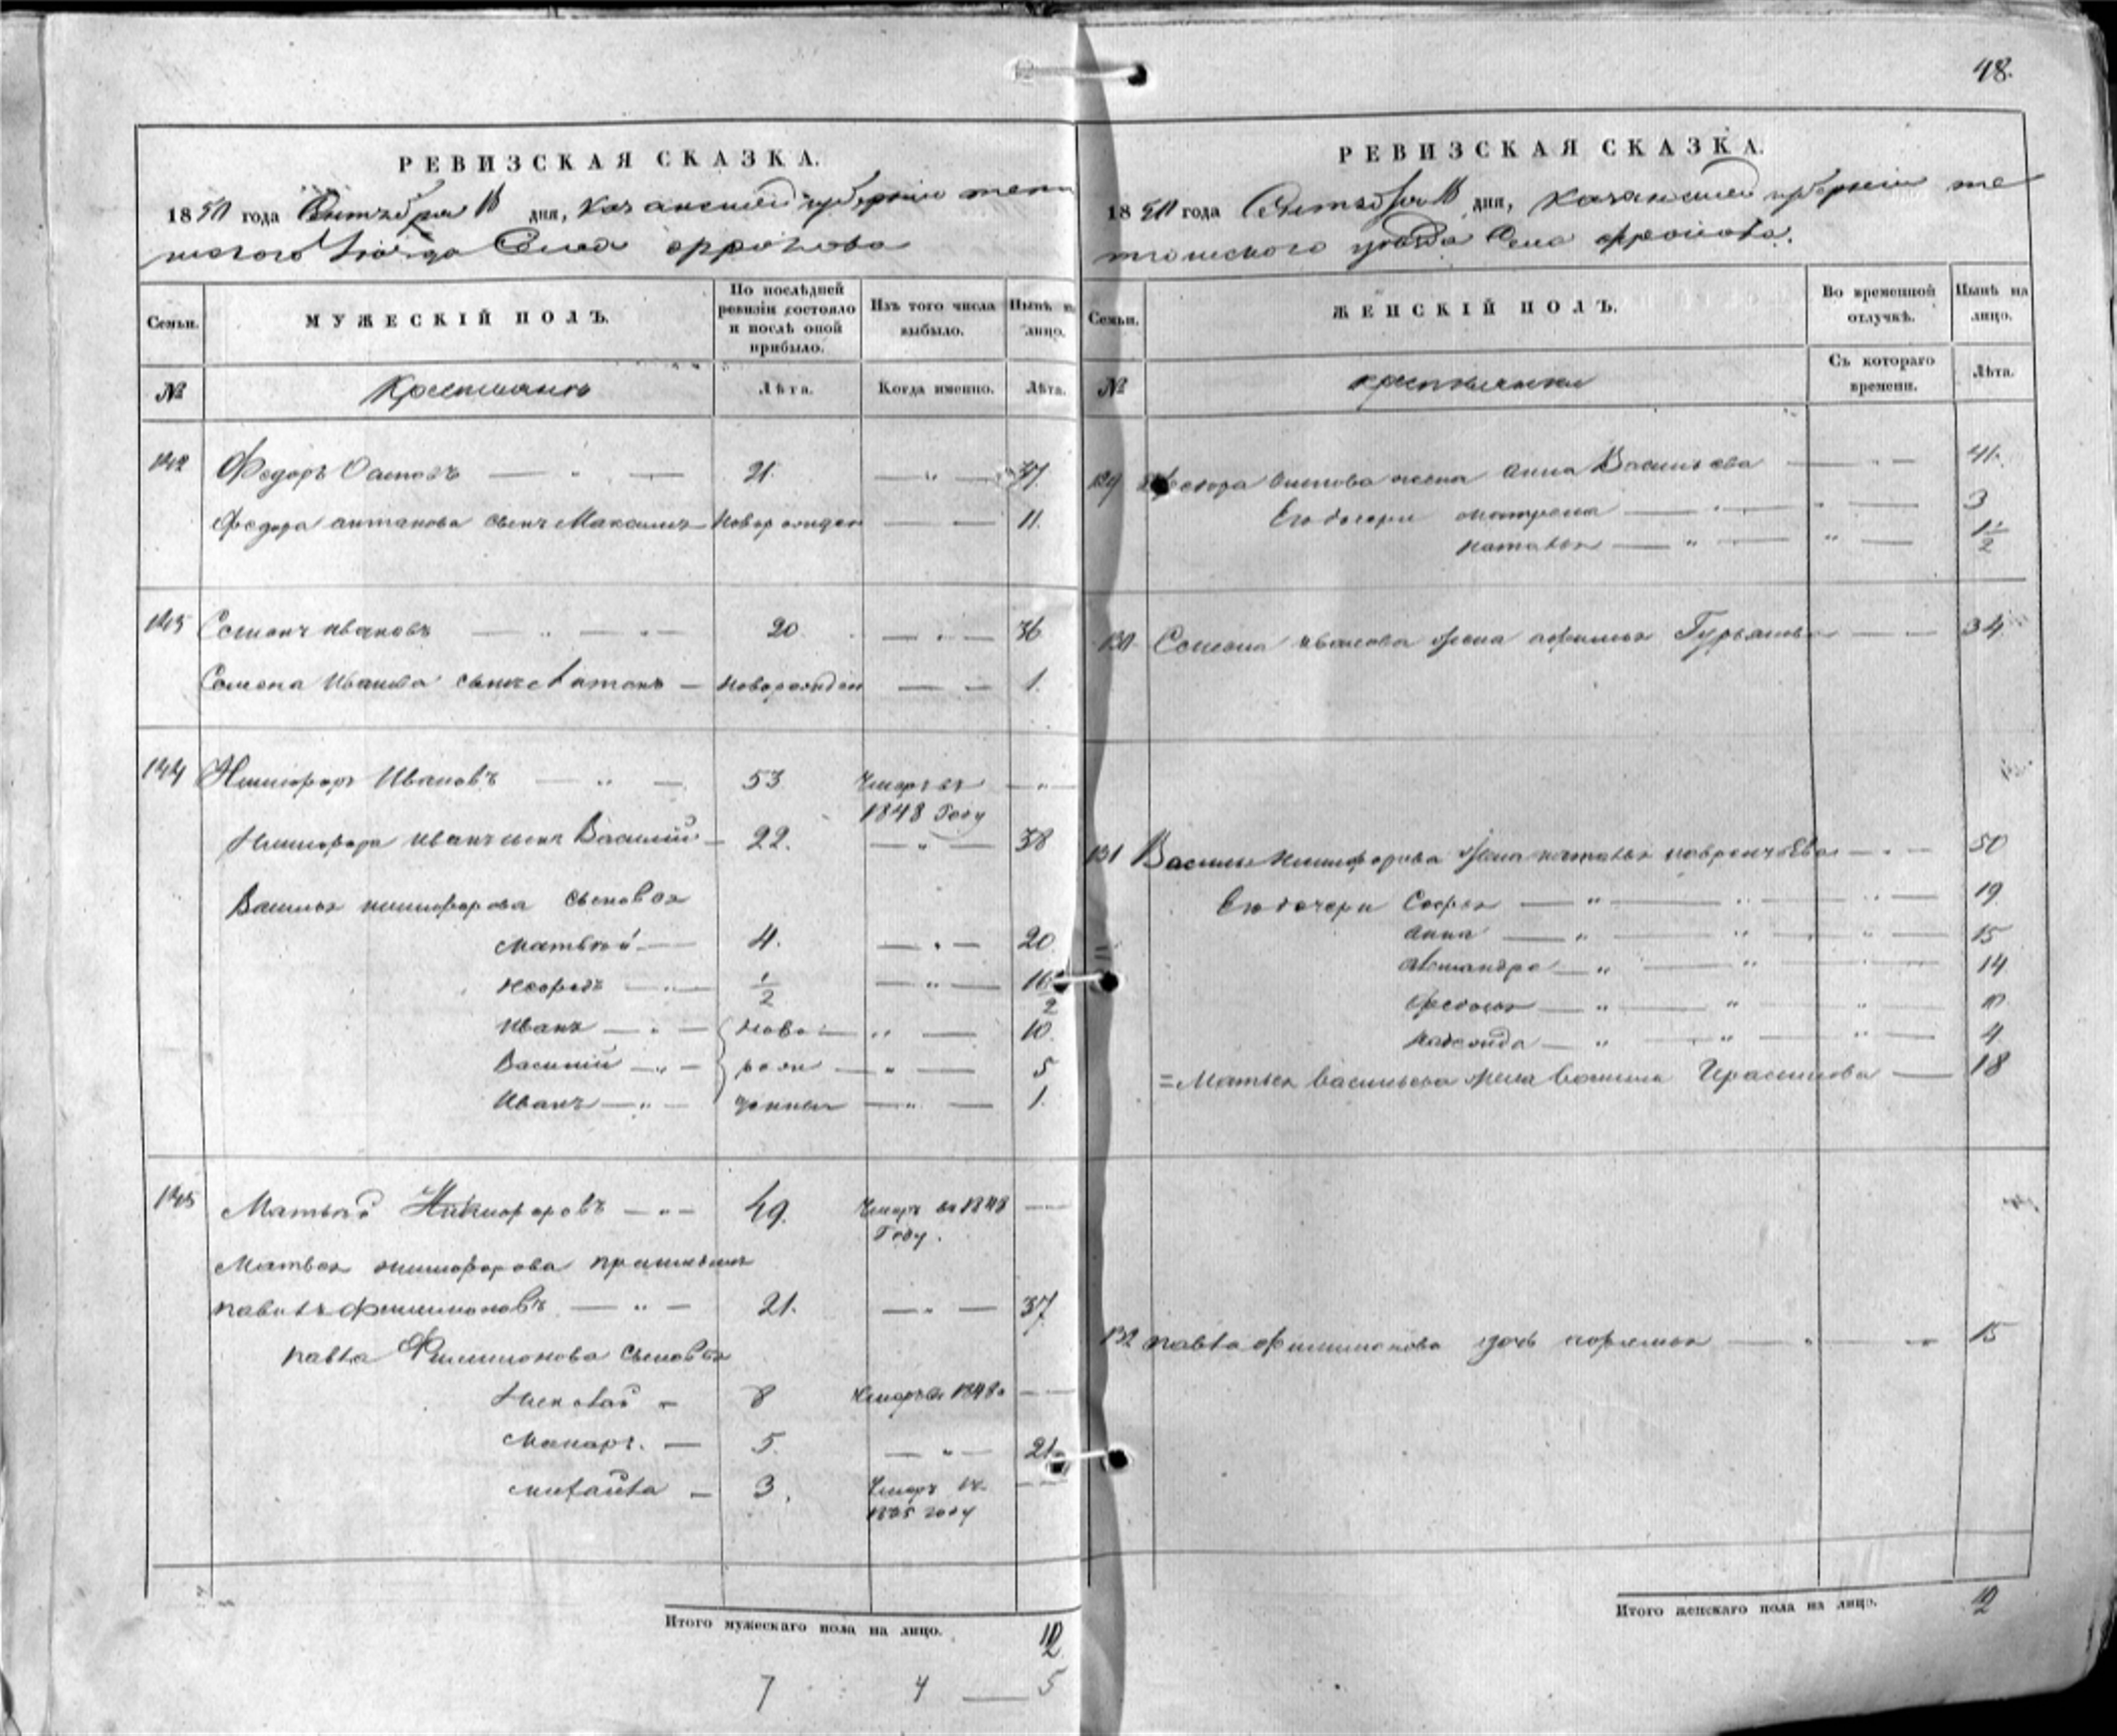 48.
РЕВИЗСКАЯ СКАЗКА.
1850 года Октября дня, Казанской губернии тетю
шского Уезда Села
Семьи.
МУЖЕСКІЙ ПОЛЪ.
По послѣдней ревизіи состояло и послѣ оной прибыло.
Изъ того числа выбыло.
Нынѣ на лицо.
№
Крестьяне
Лѣта.
Когда именно.
Лѣта.
142 Федоръ 21. 37.
Федора антанова сынъ Максимъ новорожден 11.
143 Семенъ ивановъ 20 36
Семена Иванова сынъ Антонъ новорожден 1.
144 Никифоръ Ивановъ 53 Умеръ въ
1848 Году
Никифора иванъ сынъ Василий 22. 38
Василья никифорова сыновья
Матвей 4. 20
1/2 16 1/2
Иванъ ново 10.
Василий рож 5
Иванъ денны 1.
145 Матвей Никифоровъ 49. Умеръ въ 1848
Году.
Матвея никифорова
павелъ филимоновъ 21. 37
павла Филимонова сыновья
Николай 8 Умеръ въ 1848
Макаръ. 5. 21
михайла 3. Умеръ въ
году
Итого мужескаго пола на лицо. 12
7 4 5
РЕВИЗСКАЯ СКАЗКА.
1850 года Октября дня, Казанской губернии те
тюшского уезда Села
Семьи.
ЖЕНСКІЙ ПОЛЪ.
Во временной отлучкѣ.
Нынѣ на лицо.
№
крестьянки
Съ котораго времени.
Лѣта.
129 Федора жена анна Васильева 41.
Его дочери матрена 3
наталья 1 1/2
130 Семена иванова жена афимья Гурьянова 34
131 Василья никифорова жена наталья лаврентьева 50
Его дочери Софья 19
анна 15
александра 14
федосья
надежда 4
= Матвея васильева жена 18
132 павла филимонова дочь 15
Итого женскаго пола на лицо. 12